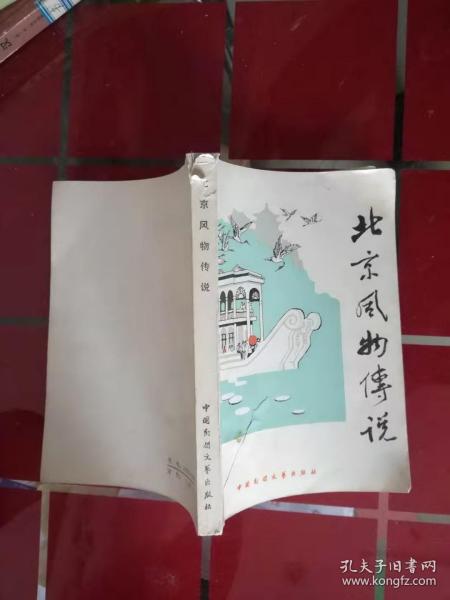 北京风物传说
中国民间文艺出版社
北京風物傳说
中国民间文艺出版社
孔夫子旧书网
www.kongfz.com